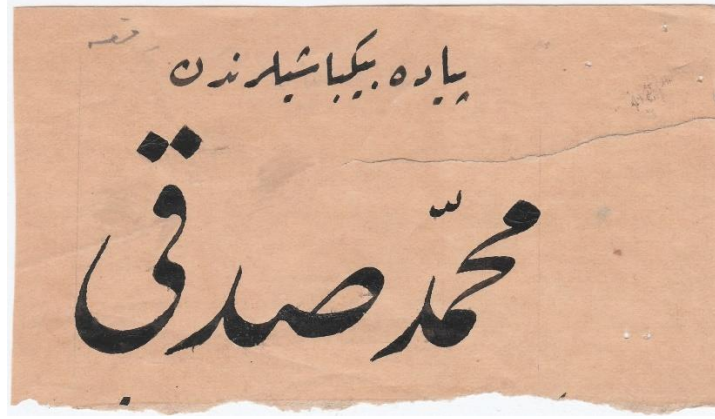 رقعه
پیاده بیکباشیلرندن
محمّد صدقی